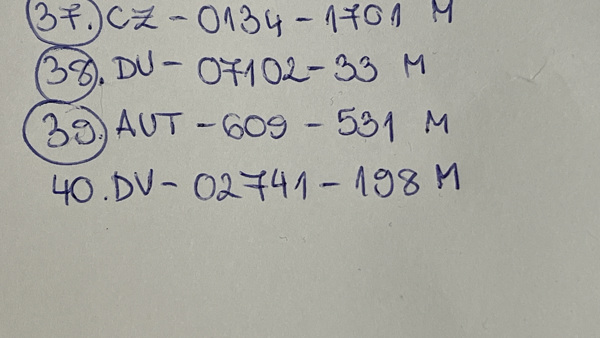 37. CZ - 0134 - 1701 M
38. DV - 07102 - 33 M
39. AUT - 609 - 531 M
40. DV - 02741 - 198 M